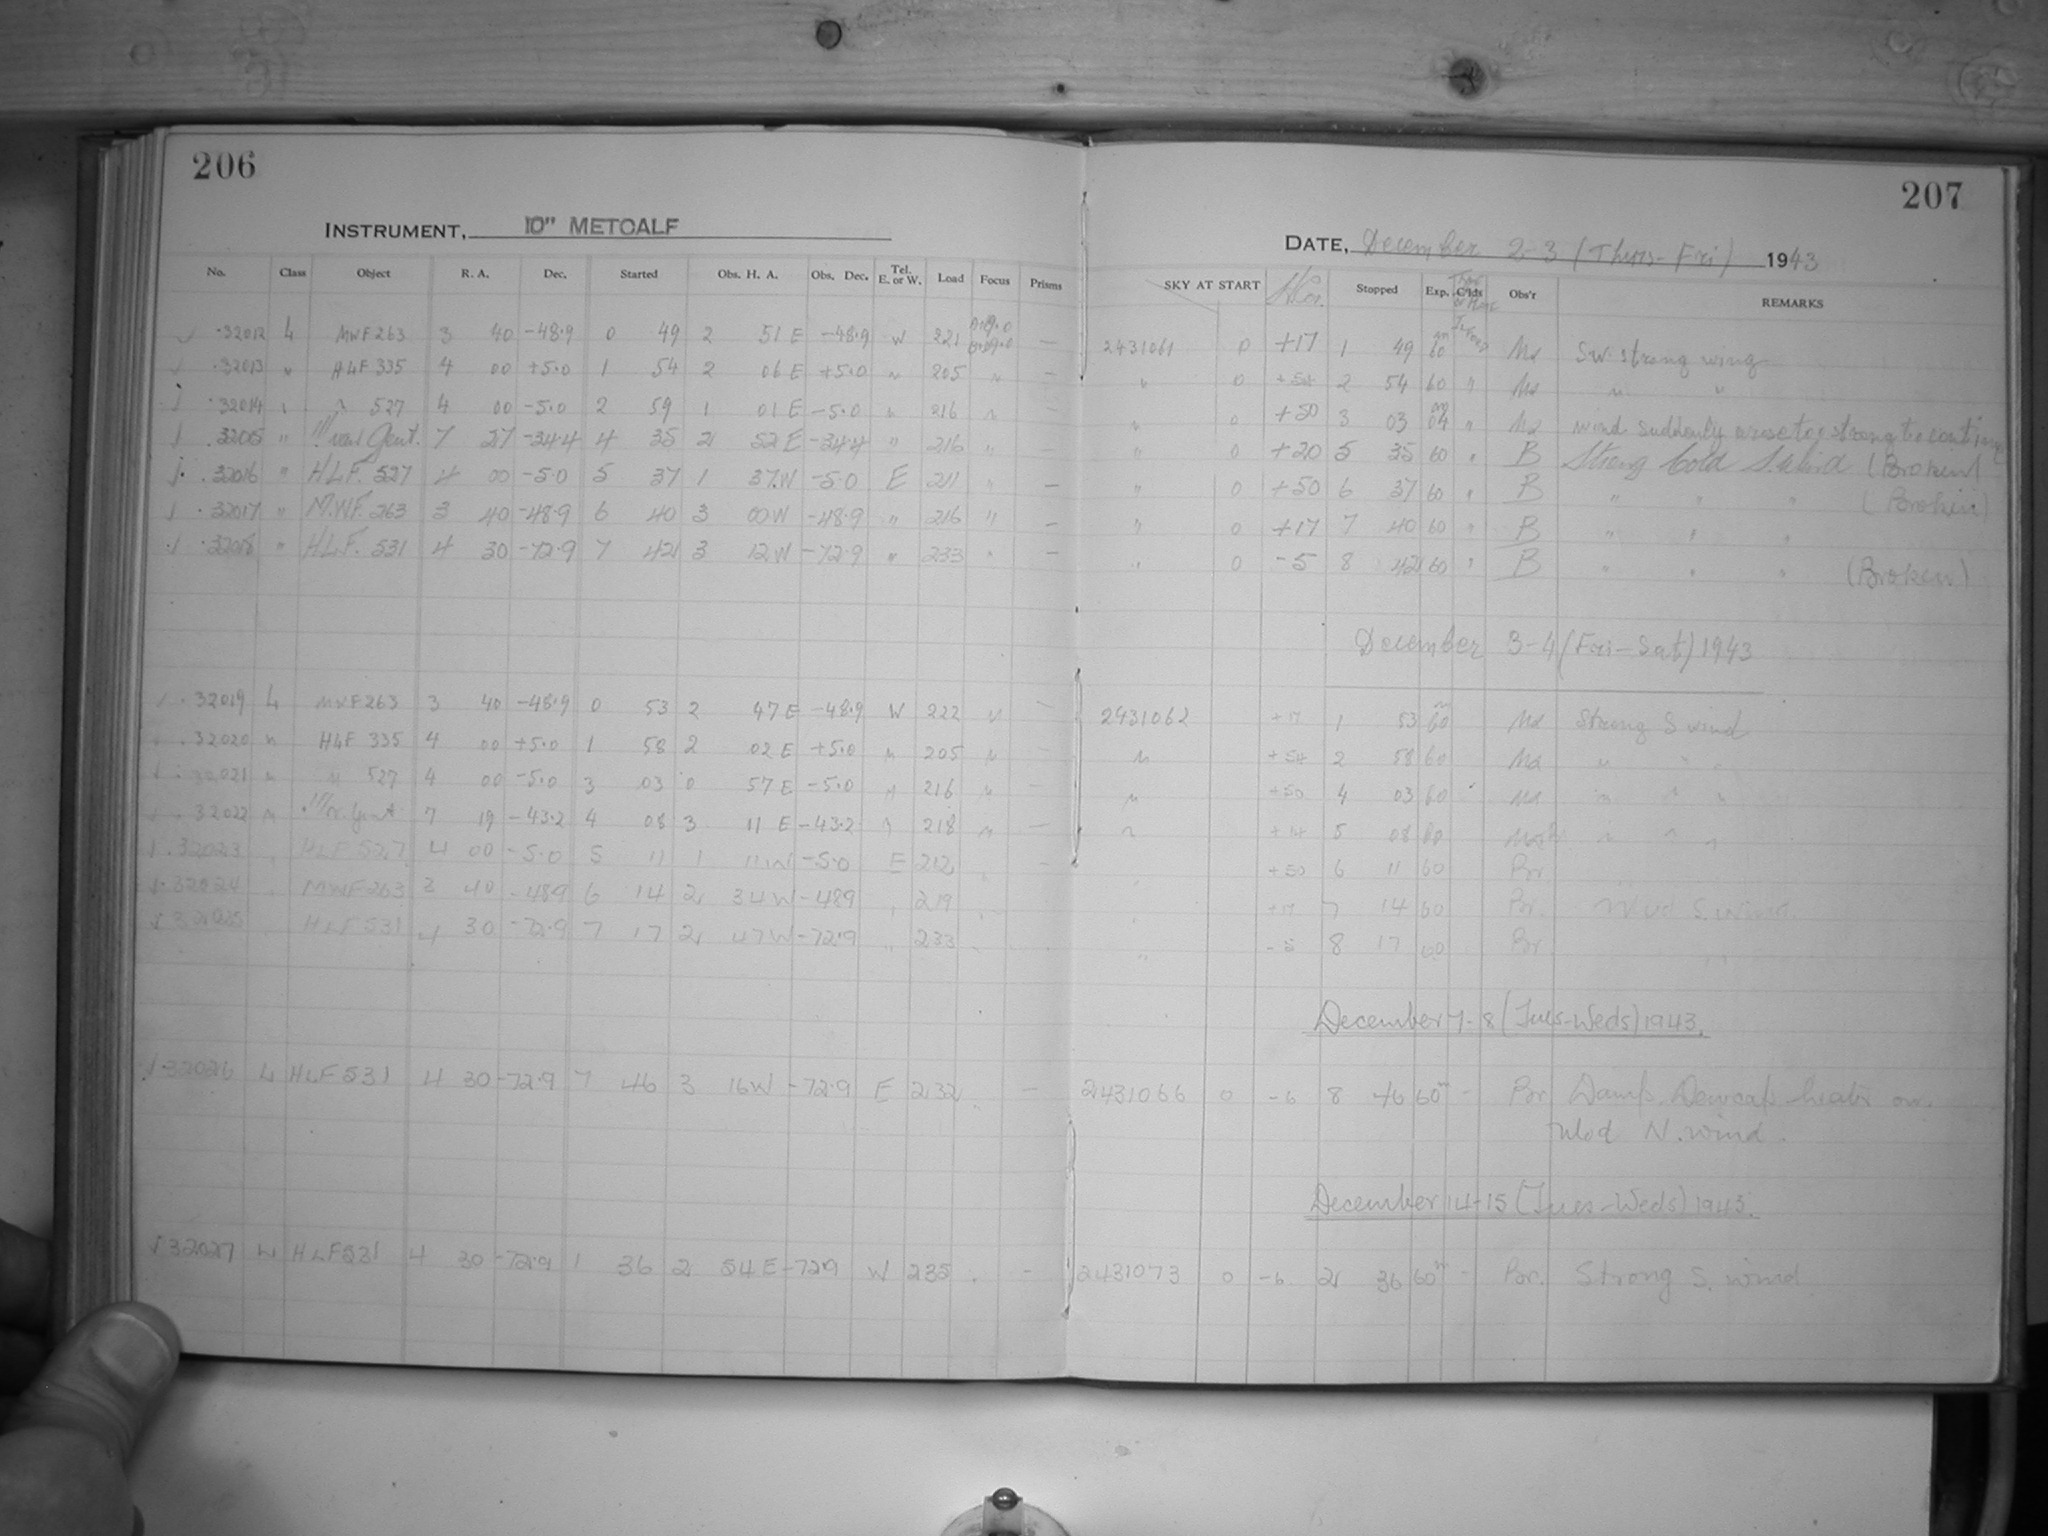 206
INSTRUMENT, 10" METCALF
No. Class Object R. A. Dec. Started Obs. H. A. Obs. Dec. Tel. E. or W. Load Focus Prisms
32012 L MWF263 3 40 -48.9 0 49 2 51 E -48.9 W 221 —
32013 " HLF 335 4 00 +5.0 1 54 2 06 E +5.0 " 205 " —
32014 " " 527 4 00 -5.0 2 59 1 01 E -5.0 " 216 " —
32015 " 7 27 -34.4 4 35 2 52 E -34.4 " 216 " —
32016 " HLF. 527 4 00 -5.0 5 37 1 37.W -5.0 E 211 " —
32017 " M.WF. 263 3 40 -48.9 6 40 3 00W -48.9 " 216 " —
32018 " HLF. 531 4 30 -72.9 7 42 3 12W -72.9 " 233 " —
32019 L MWF263 3 40 -48.9 0 53 2 47 E -48.9 W 222 " —
32020 " HLF 335 4 00 +5.0 1 58 2 02 E +5.0 " 205 " —
32021 " " 527 4 00 -5.0 3 03 0 57 E -5.0 " 216 " —
32022 " 7 19 -43.2 4 08 3 11 E -43.2 " 218 " —
32023 HLF 527 4 00 -5.0 5 11 1 11W -5.0 E 212
32024 MWF263 3 40 -48.9 6 14 2 34W -48.9 " 219
32025 HLF531 4 30 -72.9 7 17 2 47W -72.9 " 233
32026 L HLF531 4 30 -72.9 7 46 3 16W -72.9 E 232 —
32027 L HLF531 4 30 -72.9 1 36 2 54 E -72.9 W 235 —
207
DATE, December 2-3 (Thurs-Fri) 1943
SKY AT START Stopped Exp. C'lds Obs'r REMARKS
2431061 0 +17 1 49 60 Md S.W. strong wing
" 0 +54 2 54 60 " Md " "
" 0 +50 3 03 04 " Md wind suddenly arose too strong to continue
" 0 +20 5 35 60 " B Strong Cold S. Wind (Broken)
" 0 +50 6 37 60 " B " " " (Broken)
" 0 +17 7 40 60 " B " " "
" 0 -5 8 42 60 " B " " " (Broken)
December 3-4 (Fri-Sat) 1943
2431062 +17 1 53 60 Md Strong S wind
" +54 2 58 60 Md " " "
" +50 4 03 60 Md " " "
" +14 5 08 60 " " "
+50 6 11 60 Br
+17 7 14 60 Br. Mod S. wind.
" -5 8 17 60 Br
December 7-8 (Tues-Weds) 1943.
2431066 0 -6 8 46 60m - Br Damp. Dewcap heater on.
Mod N. wind.
December 14-15 (Tues-Weds) 1943.
2431073 0 -6 2 36 60m - Br. Strong S. wind